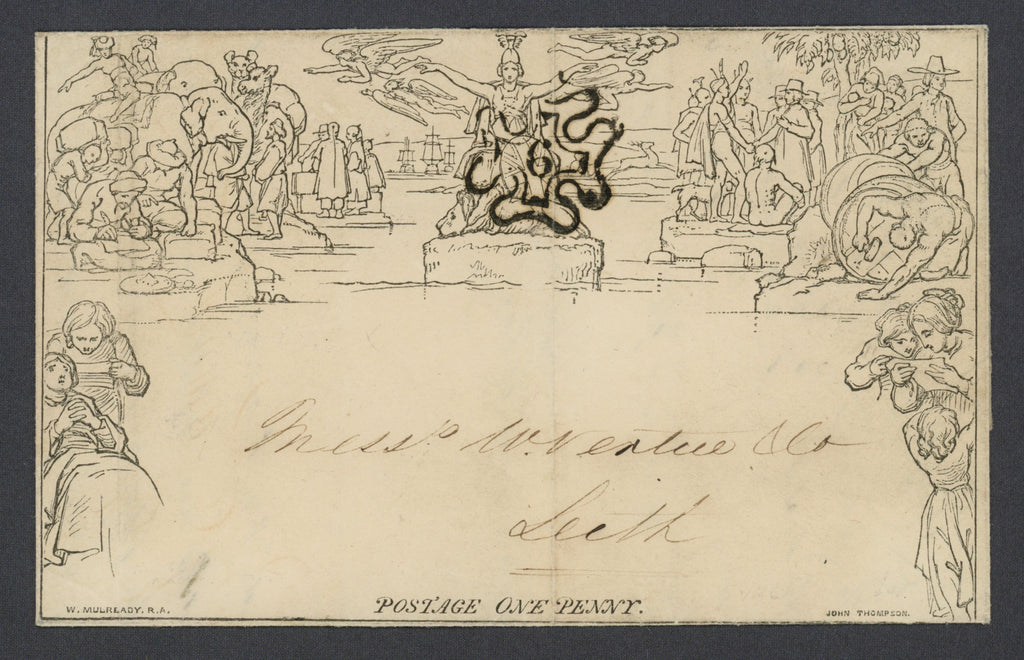 6
Messrs W. Vertue & Co
Leith
W. MULREADY. R.A.
POSTAGE ONE PENNY.
JOHN THOMPSON.